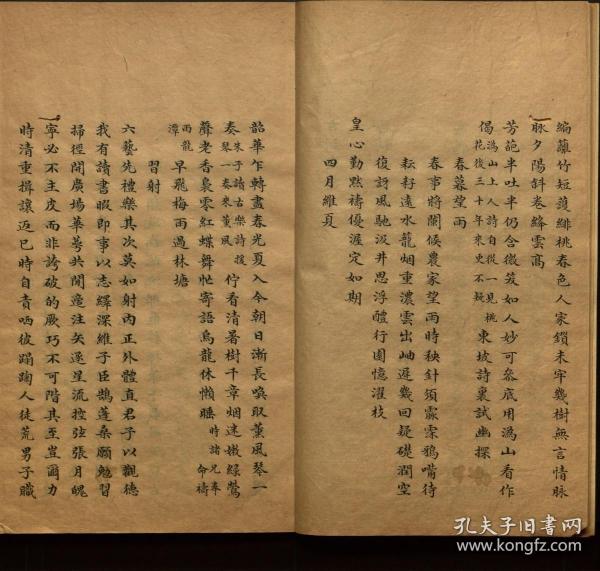 編蘺竹短護緋桃春色人家鎖未牢幾樹無言情脉
脉夕陽斜卷絳雲高
芳葩半吐半仍含微笑如人妙可叅底用溈山看作
偈溈山上人詩自從一見桃花後三十年來更不疑東坡詩裏試幽探
春暮望雨
春事將闌候農家望雨時秧針須霢霂鴉嘴待
耘耔遠水籠烟重濃雲出岫遲幾回疑礎潤空
復訝風馳汲井思浮醴行園憶濯枝
皇心勤默禱優渥定如期
四月維夏
韶華乍轉盡春光夏入今朝日漸長喚取薰風琴一
奏朱子讀古樂詩後琴一奏來薰風佇看清暑樹千章烟迷嫩綠鶯
聲老香裊零紅蝶舞忙寄語烏龍休懶睡時諸兄奉命禱
雨龍潭早飛梅雨過林塘
習射
六藝先禮樂其次莫如射內正外體直君子以觀德
我有讀書暇即事以志繹深維子臣鵠蓬桑願勉習
掃徑開廣場華萼共閒逸注矢逐星流控弦張月魄
寧必不主皮而非誇破的厥巧不可階其至豈爾力
時清重揖讓返已時自責哂彼蹋踘人徒荒男子職
孔夫子旧书网
www.kongfz.com